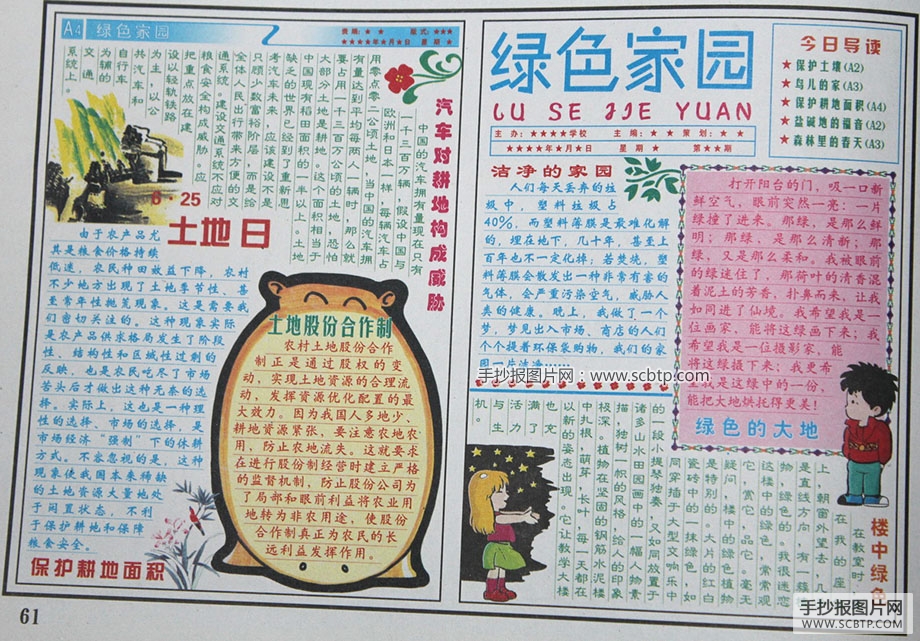 A4 绿色家园
责编：★ ★ 版式：★★★
★★★★年★月★日 星期 ★
汽车对耕地构成威胁
中国的汽车拥有量现在只有
一千三百万辆，假设中国与
欧洲和日本一样，每辆汽车占
用零点零二公顷土地，当中国的汽车拥
有量达到平均每两人一辆时，那么就
要占用一千三百万公顷的土地，恐怕
大部分土地是耕地。这个面积相当于
中国现有稻田面积的一半以上。土地
缺乏的世界已经到了重新思
考汽车未来，应该建设不是
只顾少数富裕阶层，而是给
全体人民出行带来方便的交
通系统。建设交通系统不应对
粮食安全构成威胁。应
把重点放在建
设以轻轨铁路
为主，以公
共汽车和
自行车
为辅的
交通
系统上。
6·25
土地日
由于农产品尤
其是粮食价格持续
低迷，农民种田效益下降，农村
不少地方出现了土地季节性、甚
至常年性抛荒现象。这是需要我
们密切关注的。这种现象实际
是农产品供求格局发生了阶段
性、结构性和区域性过剩的
反映，也是农民吃尽了市场
苦头后才做出这种无奈的选
择。实际上，这也是一种理
性的选择、市场的选择，是
市场经济“强制”下的休耕
方式。不容忽视的是，这种
现象使我国本来稀缺
的土地资源大量地处
于闲置状态，不利
于保护耕地和保障
粮食安全。
保护耕地面积
土地股份合作制
农村土地股份合作
制正是通过股权的变
动，实现土地资源的合理流
动，发挥资源优化配置的最
大效力。因为我国人多地少、
耕地资源紧张，要注意农地农
用，防止农地流失。这就要求
在进行股份制经营时建立严格
的监督机制，防止股份公司为
了局部和眼前利益将农业用
地转为非农用途，使股份
合作制真正为农民的长
远利益发挥作用。
61
绿色家园
LU SE JIE YUAN
主办：★★★★学校 主编：★ ★ 策划：★ ★
★★★★年★月★日 星期 ★ 第★★期
今日导读
★保护土壤(A2)
★鸟儿的家(A3)
★保护耕地面积(A4)
★盐碱地的福音(A2)
★森林里的春天(A3)
洁净的家园
人们每天丢弃的垃
圾中，塑料垃圾占
40%，而塑料薄膜是最难化解
的，埋在地下，几十年，甚至上
百年也不一定化掉；若焚烧，塑
料薄膜会散发出一种非常有害的
气体，会严重污染空气，威胁人
类的健康。晚上，我做了一个
梦，梦见出入市场、商店的人们
个个提着环保袋购物，我们的家
园一片洁净……
手抄报图片网：www.scbtp.com
打开阳台的门，吸一口新
鲜空气，眼前突然一亮：一片
绿撞了进来。那绿，是那么鲜
明；那绿，是那么清新；那
绿，又是那么柔和。我被眼前
的绿迷住了，那荷叶的清香混
着泥土的芳香，扑鼻而来，让我
如同进了仙境。我希望我是一
位画家，能将这绿画下来；我
希望我是一位摄影家，能
将这绿摄下来；我更希
望我是这绿中的一份，
能把大地烘托得更美！
绿色的大地
楼中绿色
在教室时，
在我的座
上，朝窗外望去，几
是直线方向，有一簇植
物，绿色的。我很迷恋
这楼中的绿色，常常观
它，赏它、品它。毫无
疑问，楼中的绿色植物
是特别的。大片的红白
瓷砖中的一抹绿色，如
同穿插于大型交响乐中
的一段小提琴独奏，又如同放置于
诸多山水田园画中的一幅人物素
描，独树一帜的风格，给人的印象
极深。植物在坚固的钢筋水泥楼
中扎根，萌芽，长叶，每一天都在
以新的姿态出现。它让教学大楼
也充
满了
活力
与生
机。
手抄报图片网
WWW.SCBTP.COM